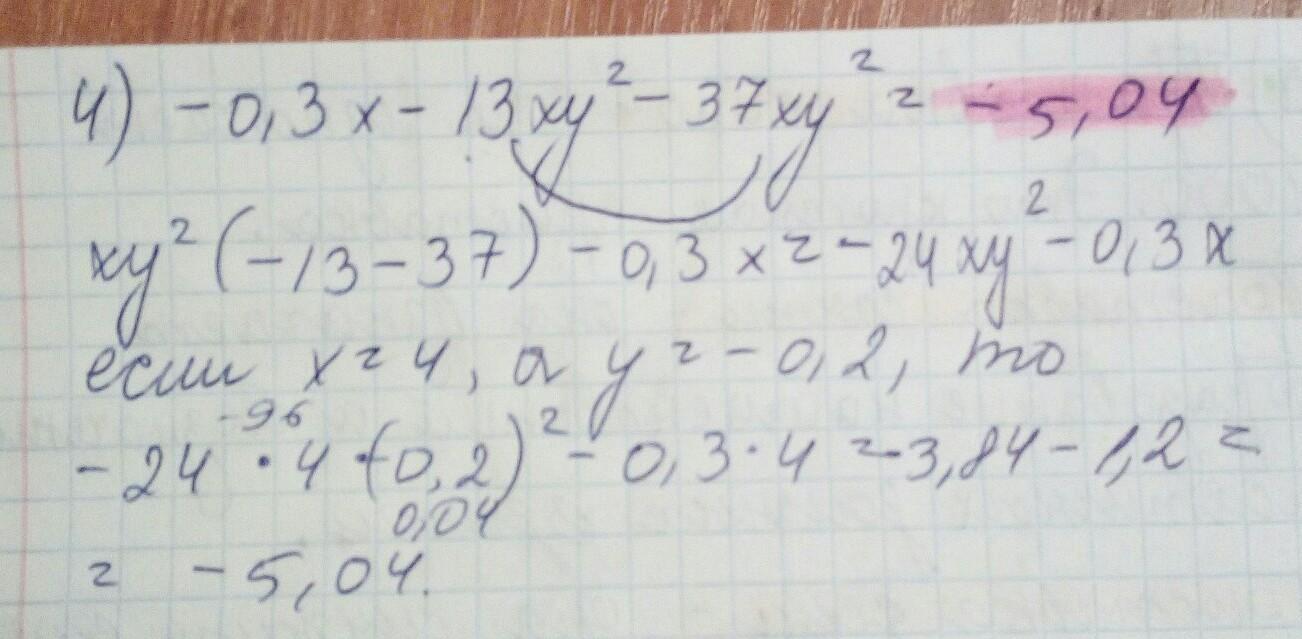 4) -0,3x - 13xy² - 37xy² = -5,04
xy² (-13 - 37) - 0,3x = -24xy² - 0,3x
если x = 4, а y = -0,2, то
-96
-24 · 4 · (-0,2)² - 0,3 · 4 = -3,84 - 1,2 =
0,04
= -5,04.